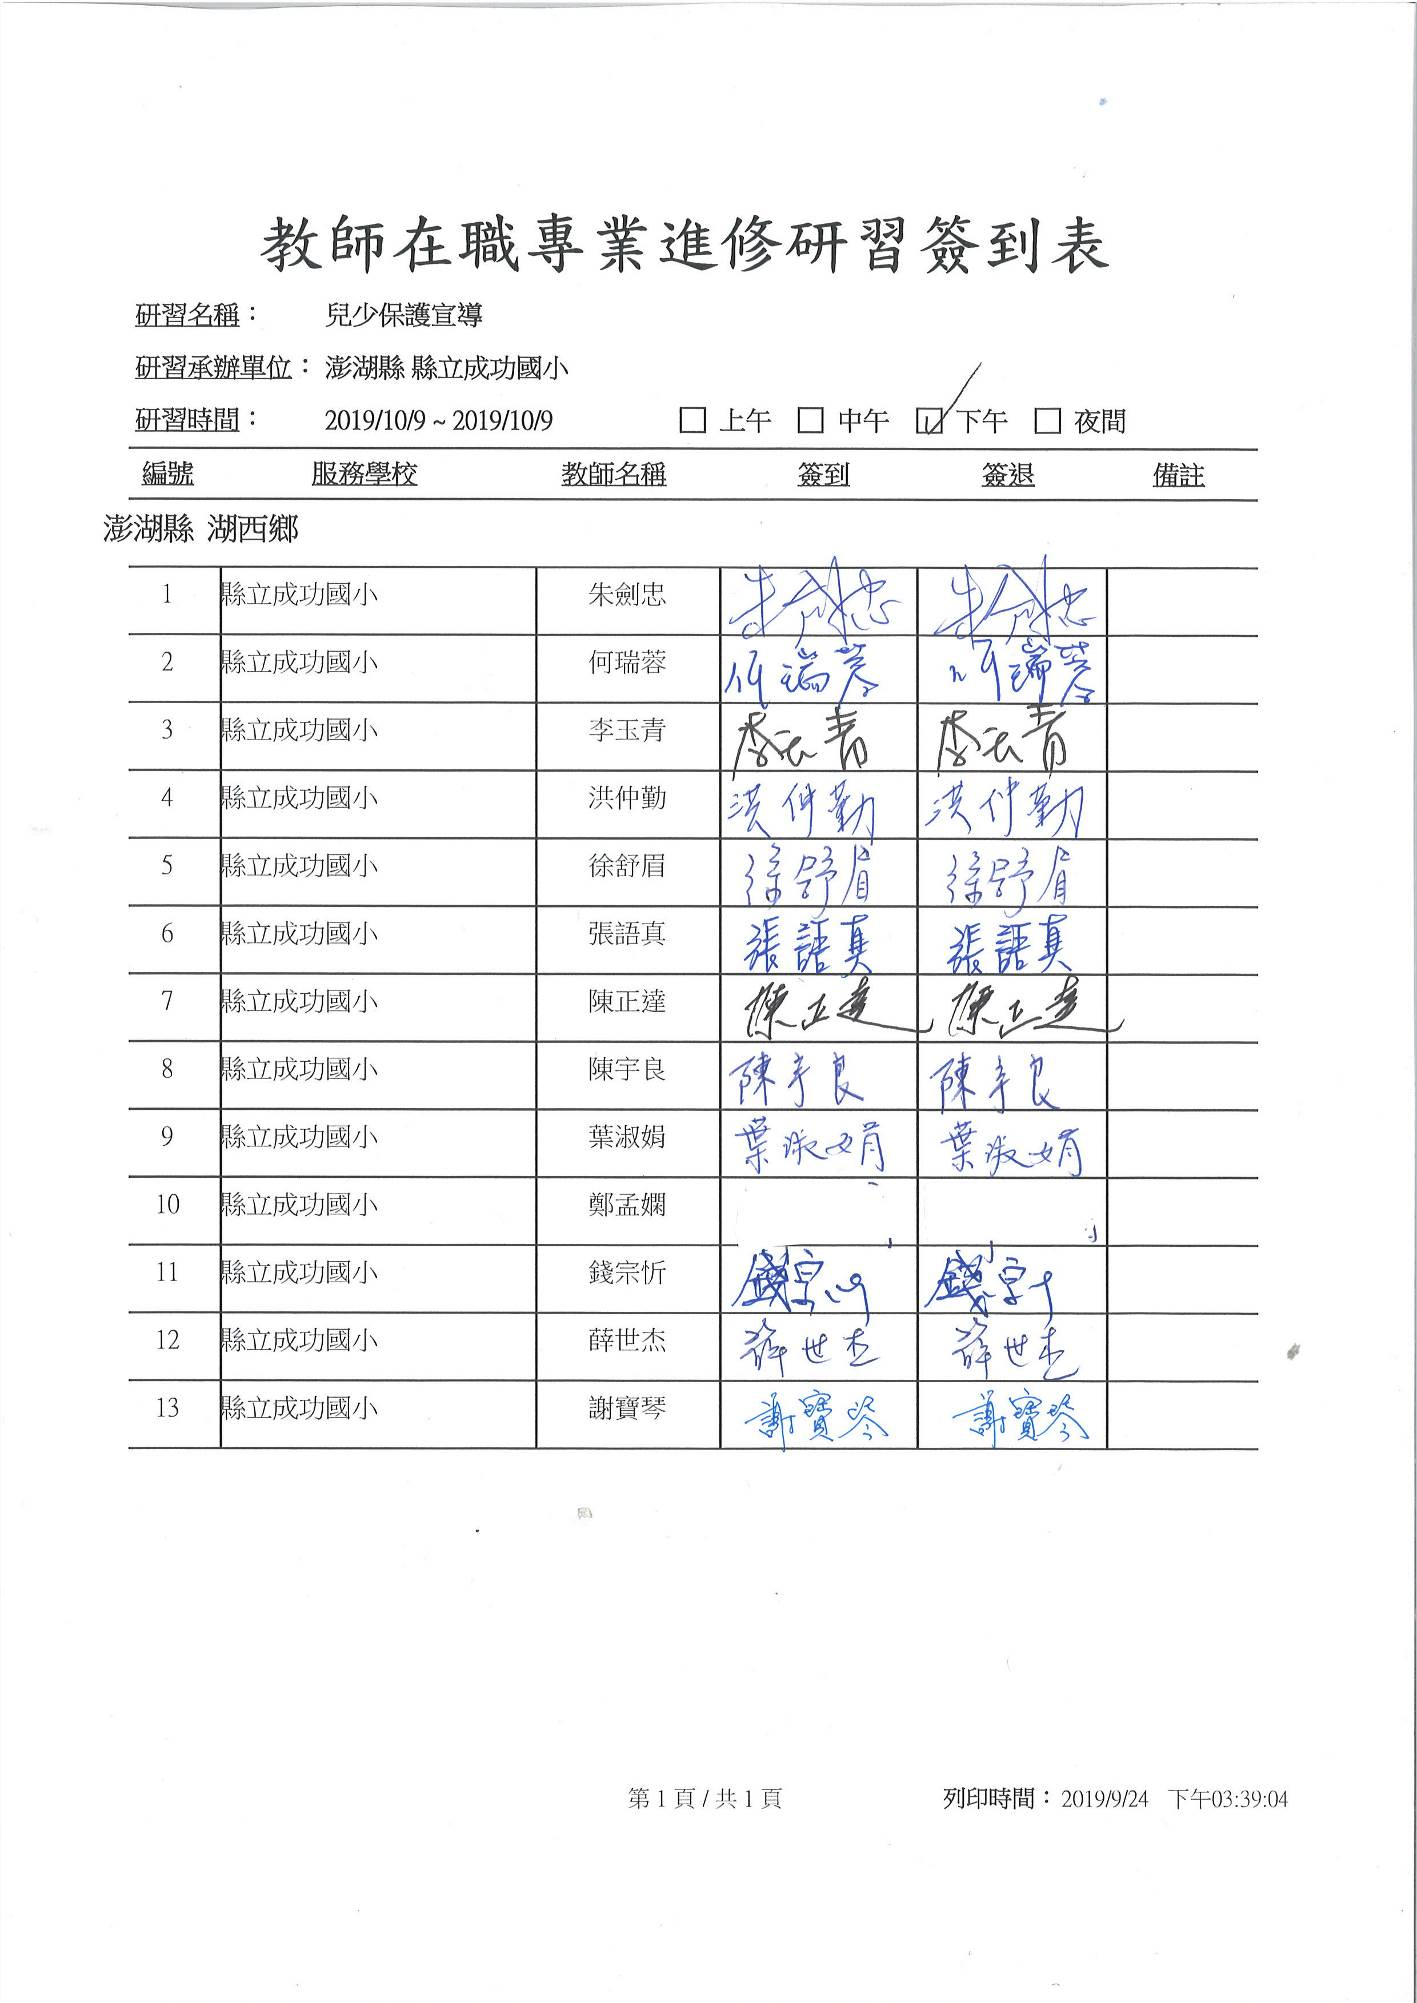 教師在職專業進修研習簽到表
研習名稱： 兒少保護宣導
研習承辦單位： 澎湖縣 縣立成功國小
研習時間： 2019/10/9 ~ 2019/10/9 □ 上午 □ 中午 ☑ 下午 □ 夜間
編號 服務學校 教師名稱 簽到 簽退 備註
澎湖縣 湖西鄉
1 縣立成功國小 朱劍忠 朱劍忠 朱劍忠
2 縣立成功國小 何瑞蓉 何瑞蓉 何瑞蓉
3 縣立成功國小 李玉青 李玉青 李玉青
4 縣立成功國小 洪仲勤 洪仲勤 洪仲勤
5 縣立成功國小 徐舒眉 徐舒眉 徐舒眉
6 縣立成功國小 張語真 張語真 張語真
7 縣立成功國小 陳正達 陳正達 陳正達
8 縣立成功國小 陳宇良 陳宇良 陳宇良
9 縣立成功國小 葉淑娟 葉淑娟 葉淑娟
10 縣立成功國小 鄭孟嫻
11 縣立成功國小 錢宗忻 錢宗忻 錢宗忻
12 縣立成功國小 薛世杰 薛世杰 薛世杰
13 縣立成功國小 謝寶琴 謝寶琴 謝寶琴
第 1 頁 / 共 1 頁 列印時間： 2019/9/24 下午03:39:04